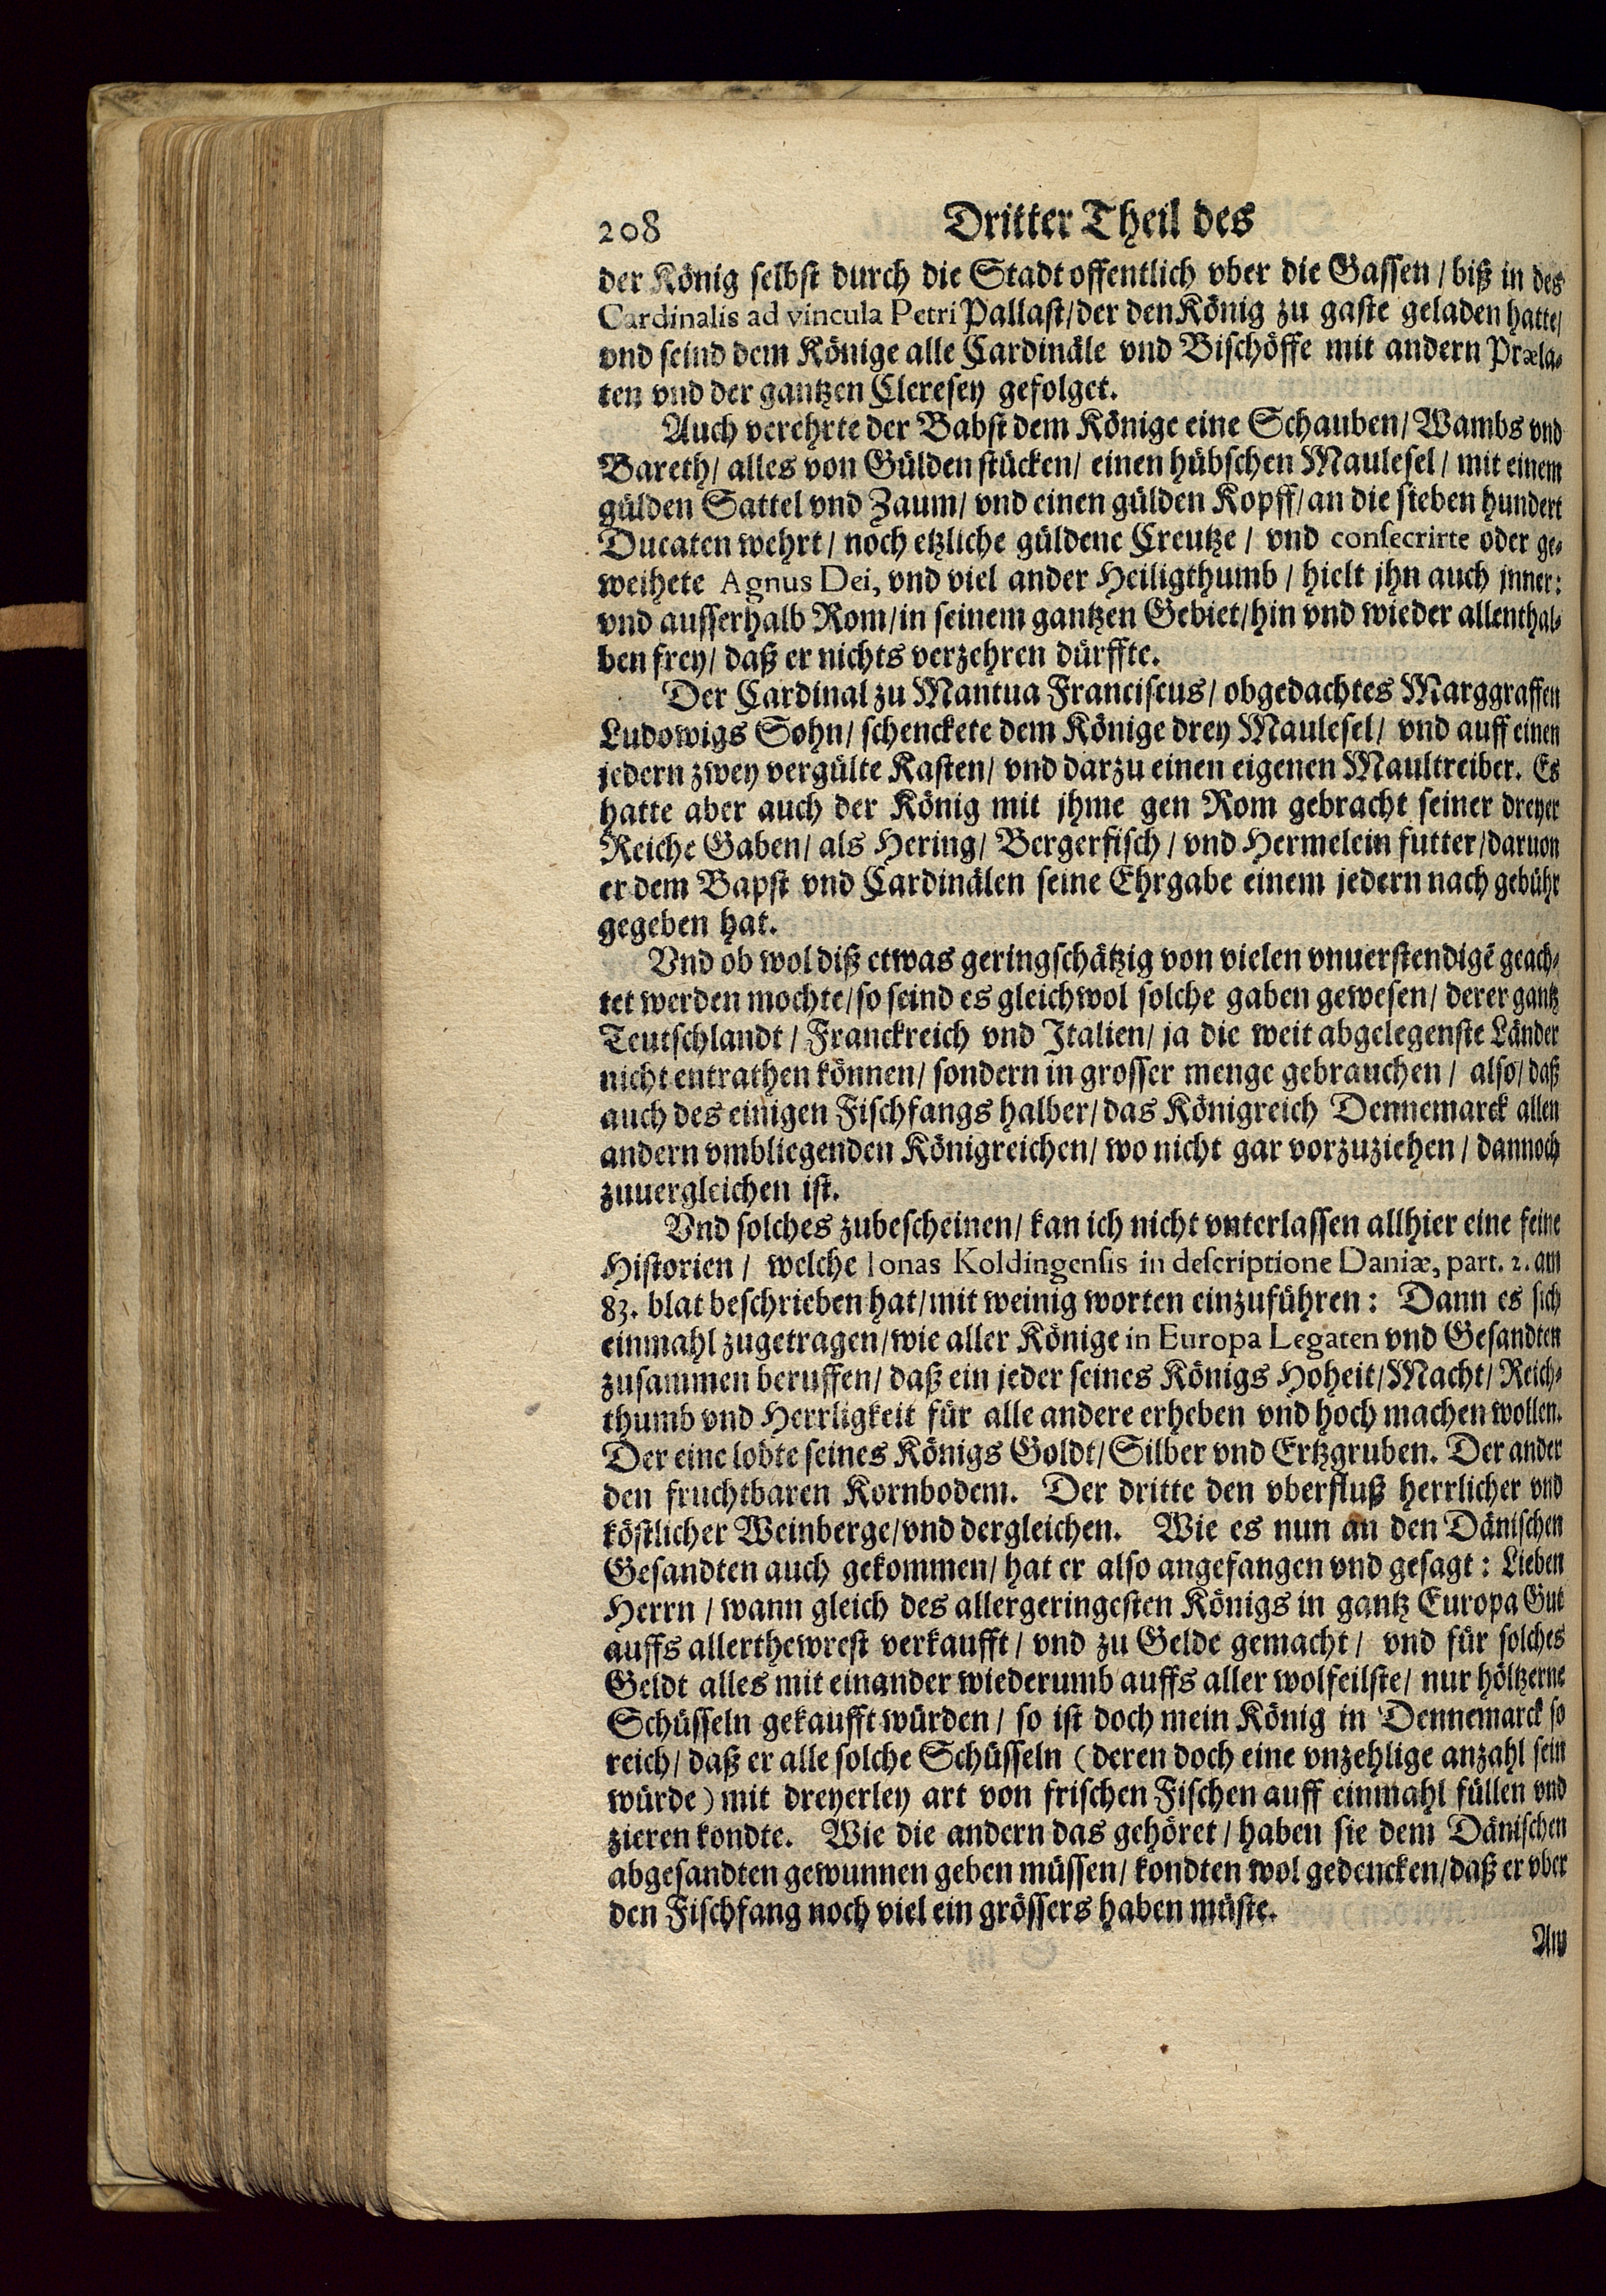 208 Dritter Theil des
der König selbst durch die Stadt offentlich vber die Gassen / biß in des
Cardinalis ad vincula Petri Pallast / der den König zu gaste geladen hatte /
vnd seind dem Könige alle Cardinäle vnd Bischöffe mit andern Præla-
ten vnd der gantzen Cleresey gefolget.
Auch verehrte der Babst dem Könige eine Schauben / Wambs vnd
Bareth / alles von Gülden stücken / einen hübschen Maulesel / mit einem
gülden Sattel vnd Zaum / vnd einen gülden Kopff / an die sieben hundert
Ducaten wehrt / noch etzliche güldene Creutze / vnd consecrirte oder ge-
weihete Agnus Dei, vnd viel ander Heiligthumb / hielt jhn auch jnner:
vnd ausserhalb Rom / in seinem gantzen Gebiet / hin vnd wieder allenthal-
ben frey / daß er nichts verzehren dürffte.
Der Cardinal zu Mantua Franciscus / obgedachtes Marggraffen
Ludowigs Sohn / schenckete dem Könige drey Maulesel / vnd auff einen
jedern zwey vergülte Kasten / vnd darzu einen eigenen Maultreiber. Es
hatte aber auch der König mit jhme gen Rom gebracht seiner dreyer
Reiche Gaben / als Hering / Bergerfisch / vnd Hermelein futter / daruon
er dem Bapst vnd Cardinälen seine Ehrgabe einem jedern nach gebühr
gegeben hat.
Vnd ob wol diß etwas geringschätzig von vielen vnuerstendigẽ geach-
tet werden mochte / so seind es gleichwol solche gaben gewesen / derer gantz
Teutschlandt / Franckreich vnd Italien / ja die weit abgelegenste Länder
nicht entrathen können / sondern in grosser menge gebrauchen / also / daß
auch des einigen Fischfangs halber / das Königreich Dennemarck allen
andern vmbliegenden Königreichen / wo nicht gar vorzuziehen / dannoch
zuuergleichen ist.
Vnd solches zubescheinen / kan ich nicht vnterlassen allhier eine feine
Historien / welche Ionas Koldingensis in descriptione Daniæ, part. 2. am
83. blat beschrieben hat / mit weinig worten einzuführen: Dann es sich
einmahl zugetragen / wie aller Könige in Europa Legaten vnd Gesandten
zusammen beruffen / daß ein jeder seines Königs Hoheit / Macht / Reich-
thumb vnd Herrligkeit für alle andere erheben vnd hoch machen wollen.
Der eine lobte seines Königs Goldt / Silber vnd Ertzgruben. Der ander
den fruchtbaren Kornbodem. Der dritte den vberfluß herrlicher vnd
köstlicher Weinberge / vnd dergleichen. Wie es nun an den Dänischen
Gesandten auch gekommen / hat er also angefangen vnd gesagt: Lieben
Herrn / wann gleich des allergeringesten Königs in gantz Europa Gut
auffs allerthewrest verkaufft / vnd zu Gelde gemacht / vnd für solches
Geldt alles mit einander wiederumb auffs aller wolfeilste / nur höltzerne
Schüsseln gekaufft würden / so ist doch mein König in Dennemarck so
reich / daß er alle solche Schüsseln (deren doch eine vnzehlige anzahl sein
würde) mit dreyerley art von frischen Fischen auff einmahl füllen vnd
zieren kondte. Wie die andern das gehöret / haben sie dem Dänischen
abgesandten gewunnen geben müssen / kondten wol gedencken / daß er vber
den Fischfang noch viel ein grössers haben müste.
Am